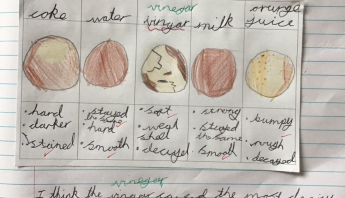 coke
water
vinegar
vingar
milk
orange
juice
• hard
• darker
• stained
• stayed
the same
• hard
• smooth
• soft
• weak
shell
• decayed
• strong
• stayed
the same
• smooth
• bumpy
• rough
• decayed
vinegar
I think the vinegar caused the most decay